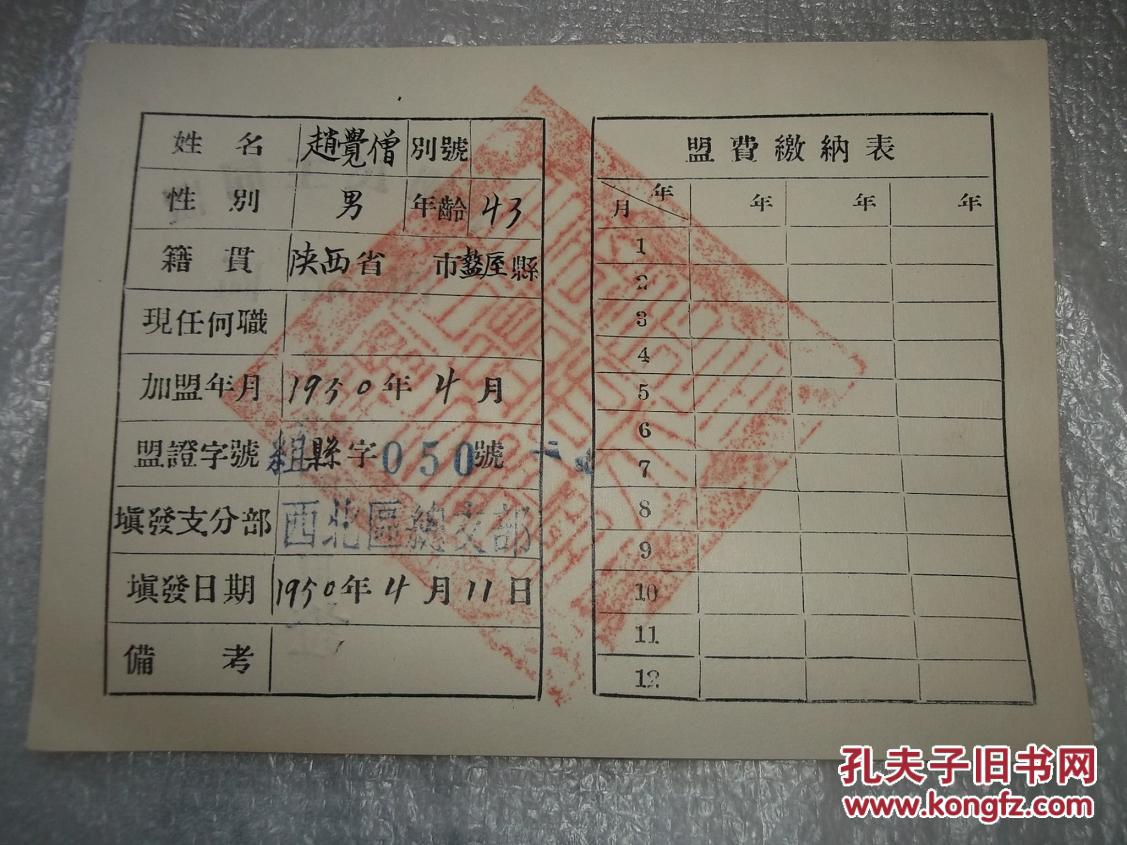 姓名 趙覺僧 別號
性別 男 年齡 43
籍貫 陕西省 市盩厔縣
現任何職
加盟年月 1950年4月
盟證字號 組縣字050號
填發支分部 西北區總支部
填發日期 1950年4月11日
備考
盟費繳納表
月 年 年 年 年
1
2
3
4
5
6
7
8
9
10
11
12
孔夫子旧书网
www.kongfz.com